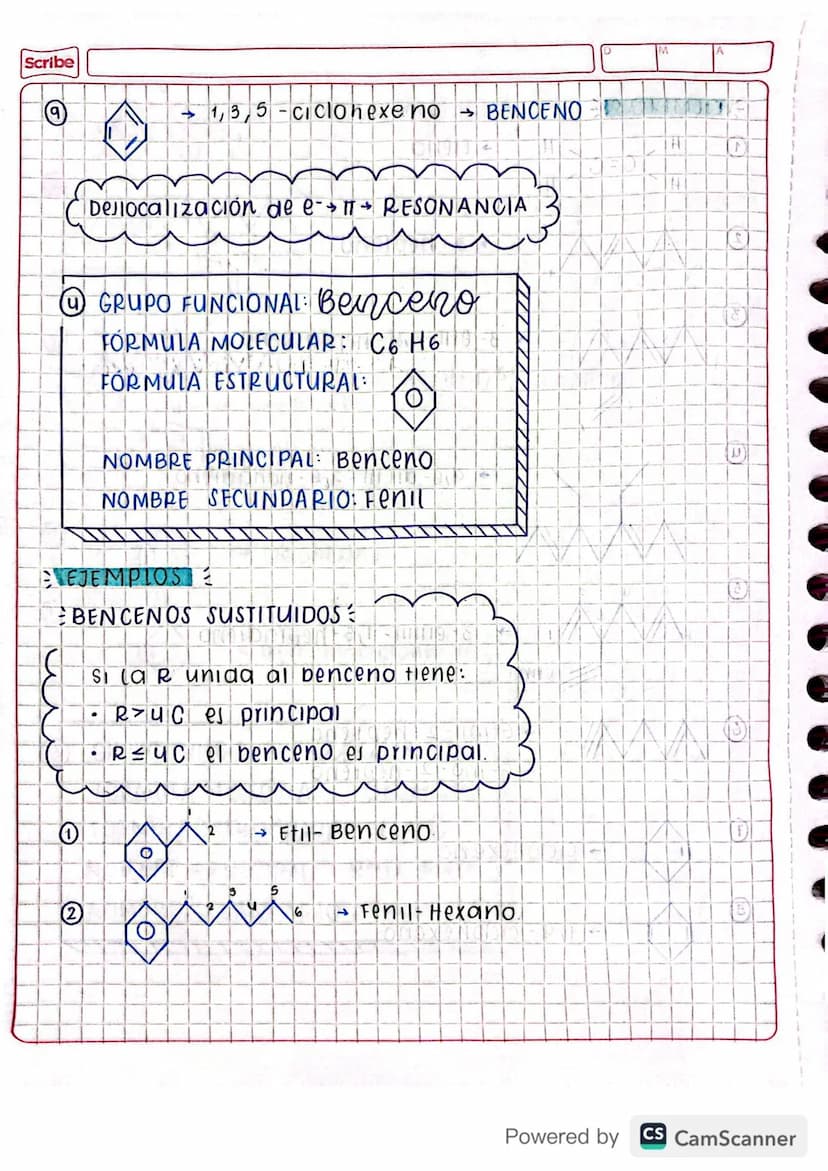 Scribe
D M A
9 → 1,3,5 -ciclohexeno → BENCENO
Deslocalización de e⁻→ π → RESONANCIA
4 GRUPO FUNCIONAL: Benceno
FÓRMULA MOLECULAR: C6 H6
FÓRMULA ESTRUCTURAL:
NOMBRE PRINCIPAL: Benceno
NOMBRE SECUNDARIO: Fenil
EJEMPLOS
BENCENOS SUSTITUIDOS
Si la R unida al benceno tiene:
· R>4C es principal
· R≤4C el benceno es principal.
1 1 2 → Etil- Benceno
2 1 2 3 4 5 6 → Fenil-Hexano
Powered by CS CamScanner